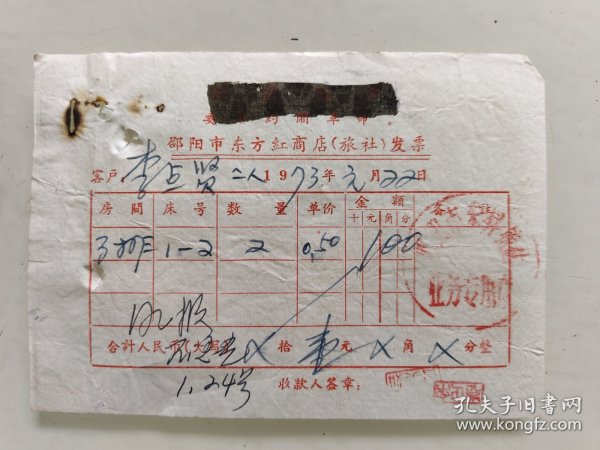 要 节 约 闹 革 命 。
邵阳市东方紅商店(旅社)发票
客户 李占贤 二人 1973年元月22日
房間 床号 数量 单价 金額 备註
十 元 角 分
1-2 2 0.50 1 00
业务专用
合計人民币大写 X 拾 壹 元 X 角 X 分整
1.24号 收款人签章:
孔夫子旧书网
www.kongfz.com